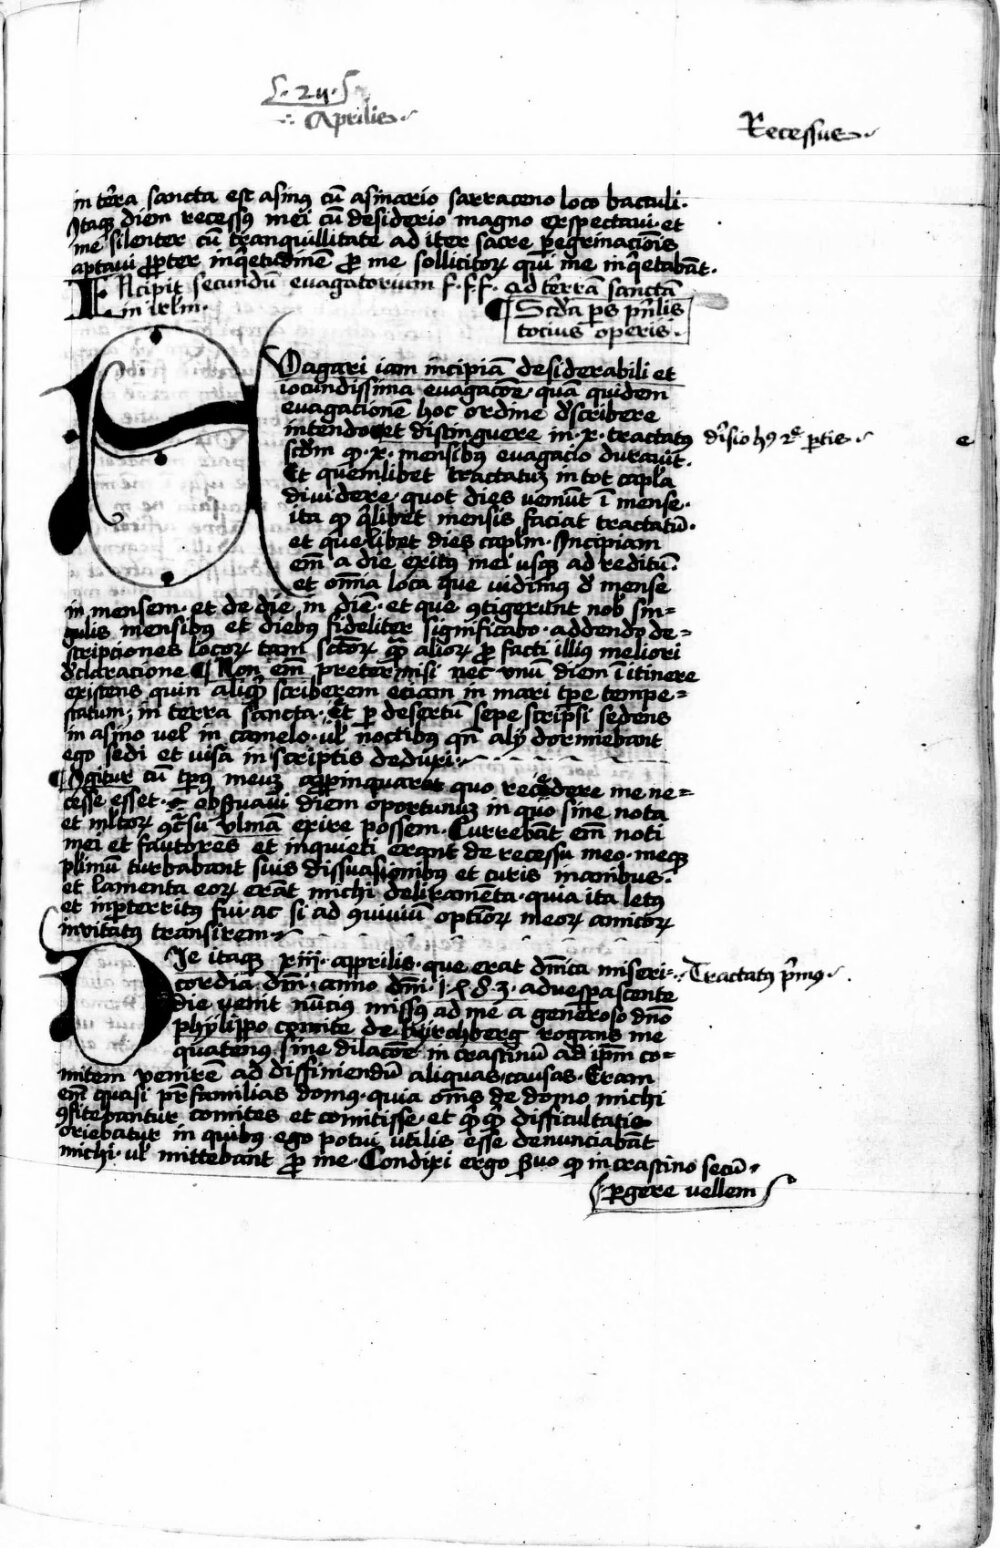 ·24·
Aprilis
Recessus
in terra sancta est asinus cū asinario sarraceno loco baculi·
Itaqꝫ diem recessus mei cū desiderio magno exspectavi· et
me silenter cū tranquillitate ad iter sacre pegrinacōis
aptavi ꝓpter inqͥetudinē ꝓ me sollicitoꝝ qui me inqͥetabāt·
INcipit secundū evagatorium f·f·f· ad terrā sanctā
in irlm·
¶ Scda ps pͥnlis
tocius operis·
Vagari iam incipiā desiderabili et
iocundissima evagacōe· quā quidem
evagacionē hoc ordine dscribere
intendo et distinguere in·x· tractatus
scdm qͦ·x· mensibus evagacio duravit·
Et quemlibet tractatuꝫ in tot capla
dividere quot dies veniūt ī mense·
ita qͦ qͥlibet mensis faciat tractatū·
et quelibet dies caplm· Incipiam
em̄ a die exitus mei usqꝫ ad reditū·
et om̄ia loca que vidimus d mense
diͥsio hꝰ 2e ptis
e
in mensem· et de die in diē· et que ꝯtigerunt nob sin=
gulis mensibus et diebus fideliter significabo· addendo de=
scriptiones locoꝝ tam sctoꝝ qͣ alioꝝ ꝓ facti illius meliori
dclaracione ¶ Non em̄ pretermisi nec unū diem ī itinere
existens quin aliqͥd scriberem eciam in mari tpe tempe=
statum, in terra sancta· Et ꝑ desertū sepe scripsi sedens
in asino vel in camelo· ul noctibus qn̄ alij dormiebant
ego sedi et visa in scriptis deduxi·
¶ Igitur cū tpus meuꝫ appropinquaret quo recedere me ne=
cesse esset· observavi diem oportunuꝫ in quo sine nota
et multoꝝ ꝯcͣsu ulmā exire possem· Currebāt em̄ noti
mei et fautores et inquieti erant de recessu meo· meqꝫ
plimū turbabant suis dissuasionibus et curis inanibus·
et lamenta eoꝝ erāt michi deliramēta· quia ita letus
et impterritus fui· ac si ad ꝯviviū optioꝝ meoꝝ amicoꝝ
invitatus transirem·
DIe itaqꝫ xiiii· apprilis· que erat dn̄ica miseri=
cordia dni· anno dni· 1·4·8·3· advesperascente
die venit nūcius missus ad me a generoso dn̄o
phylippo comite de kyrchberg rogans me
quatenus sine dilacōe in crastinū ad ipm̄ co=
Tractatus pͥmus·
mitem venire ad diffiniendū aliquas causas· Eram
em̄ quasi prfamilias domus· quia om̄s de domo michi
ꝯfitebantur comites et comitisse· et qͥcqͥd difficultatis
oriebatur in quibus ego potui utilis esse denunciabāt
michi· ul mittebant ꝓ me· Condixi ergo suo qͦ in crastino secū
pgere vellem